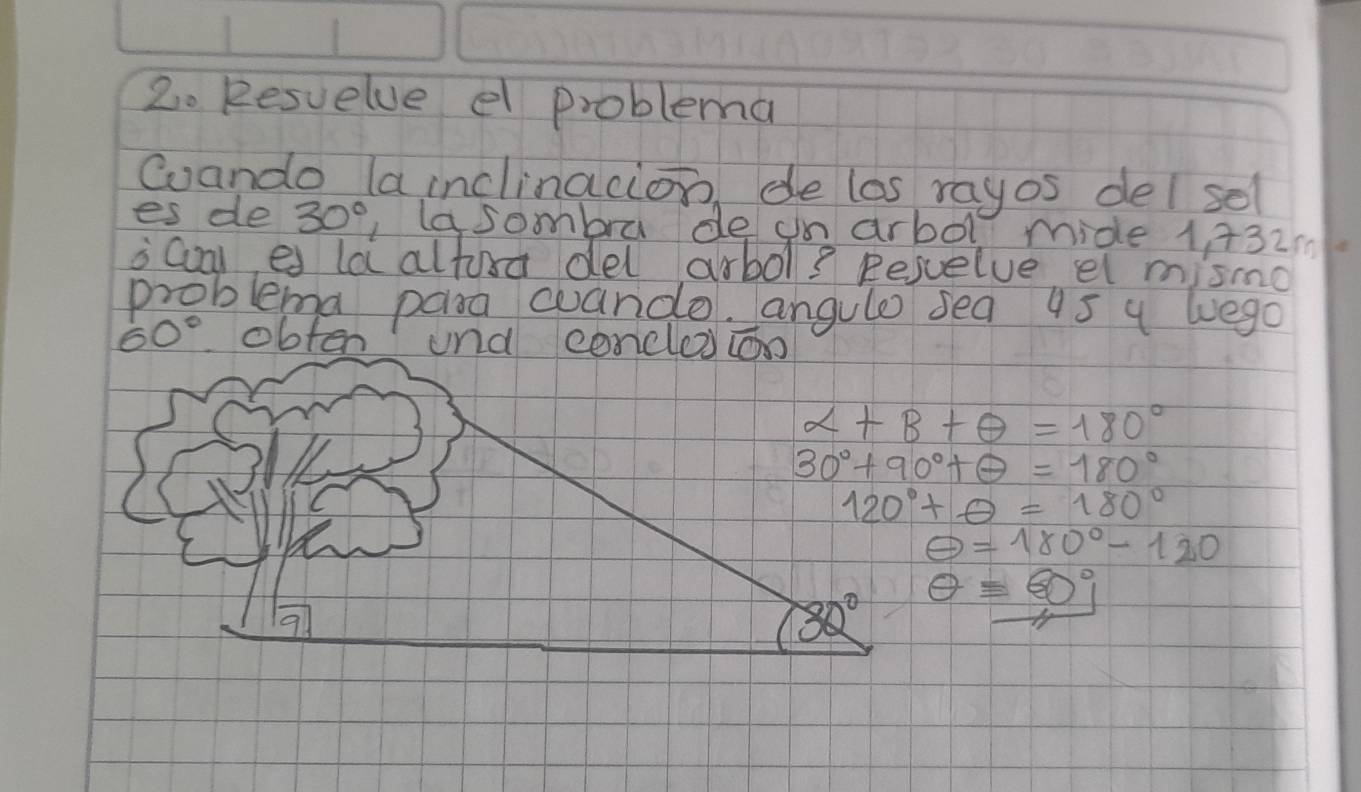 2. Resuelve el problema
Cuando la inclinación de los rayos del sol
es de 30°, la sombra de un arbol mide 1,732m
¿Cual es la altura del arbol? Resuelve el mismo
problema para cuando. angulo sea 45 y luego
60° obten una conclosión
α + B + θ = 180°
30° + 90° + θ = 180°
120° + θ = 180°
θ = 180° - 120
θ = 60°
30°